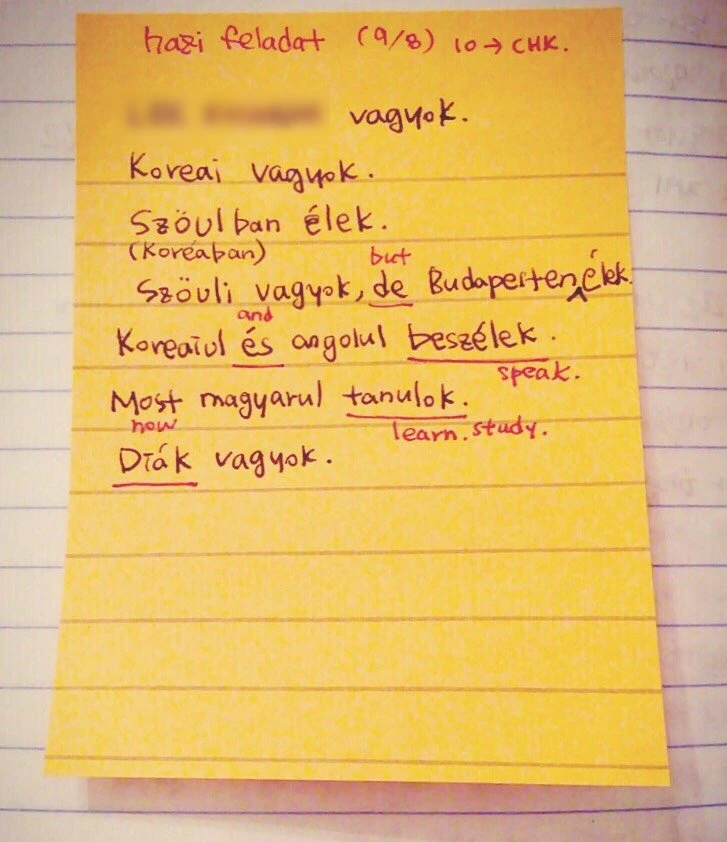 hazi feladat (9/8) 10 → CHK.
vagyok.
Koreai vagyok.
Szöulban élek.
(Koreában)
but
Szöuli vagyok, de Budapesten élek.
and
Koreaiul és angolul beszélek.
speak.
Most magyarul tanulok.
now learn. study.
Diák vagyok.